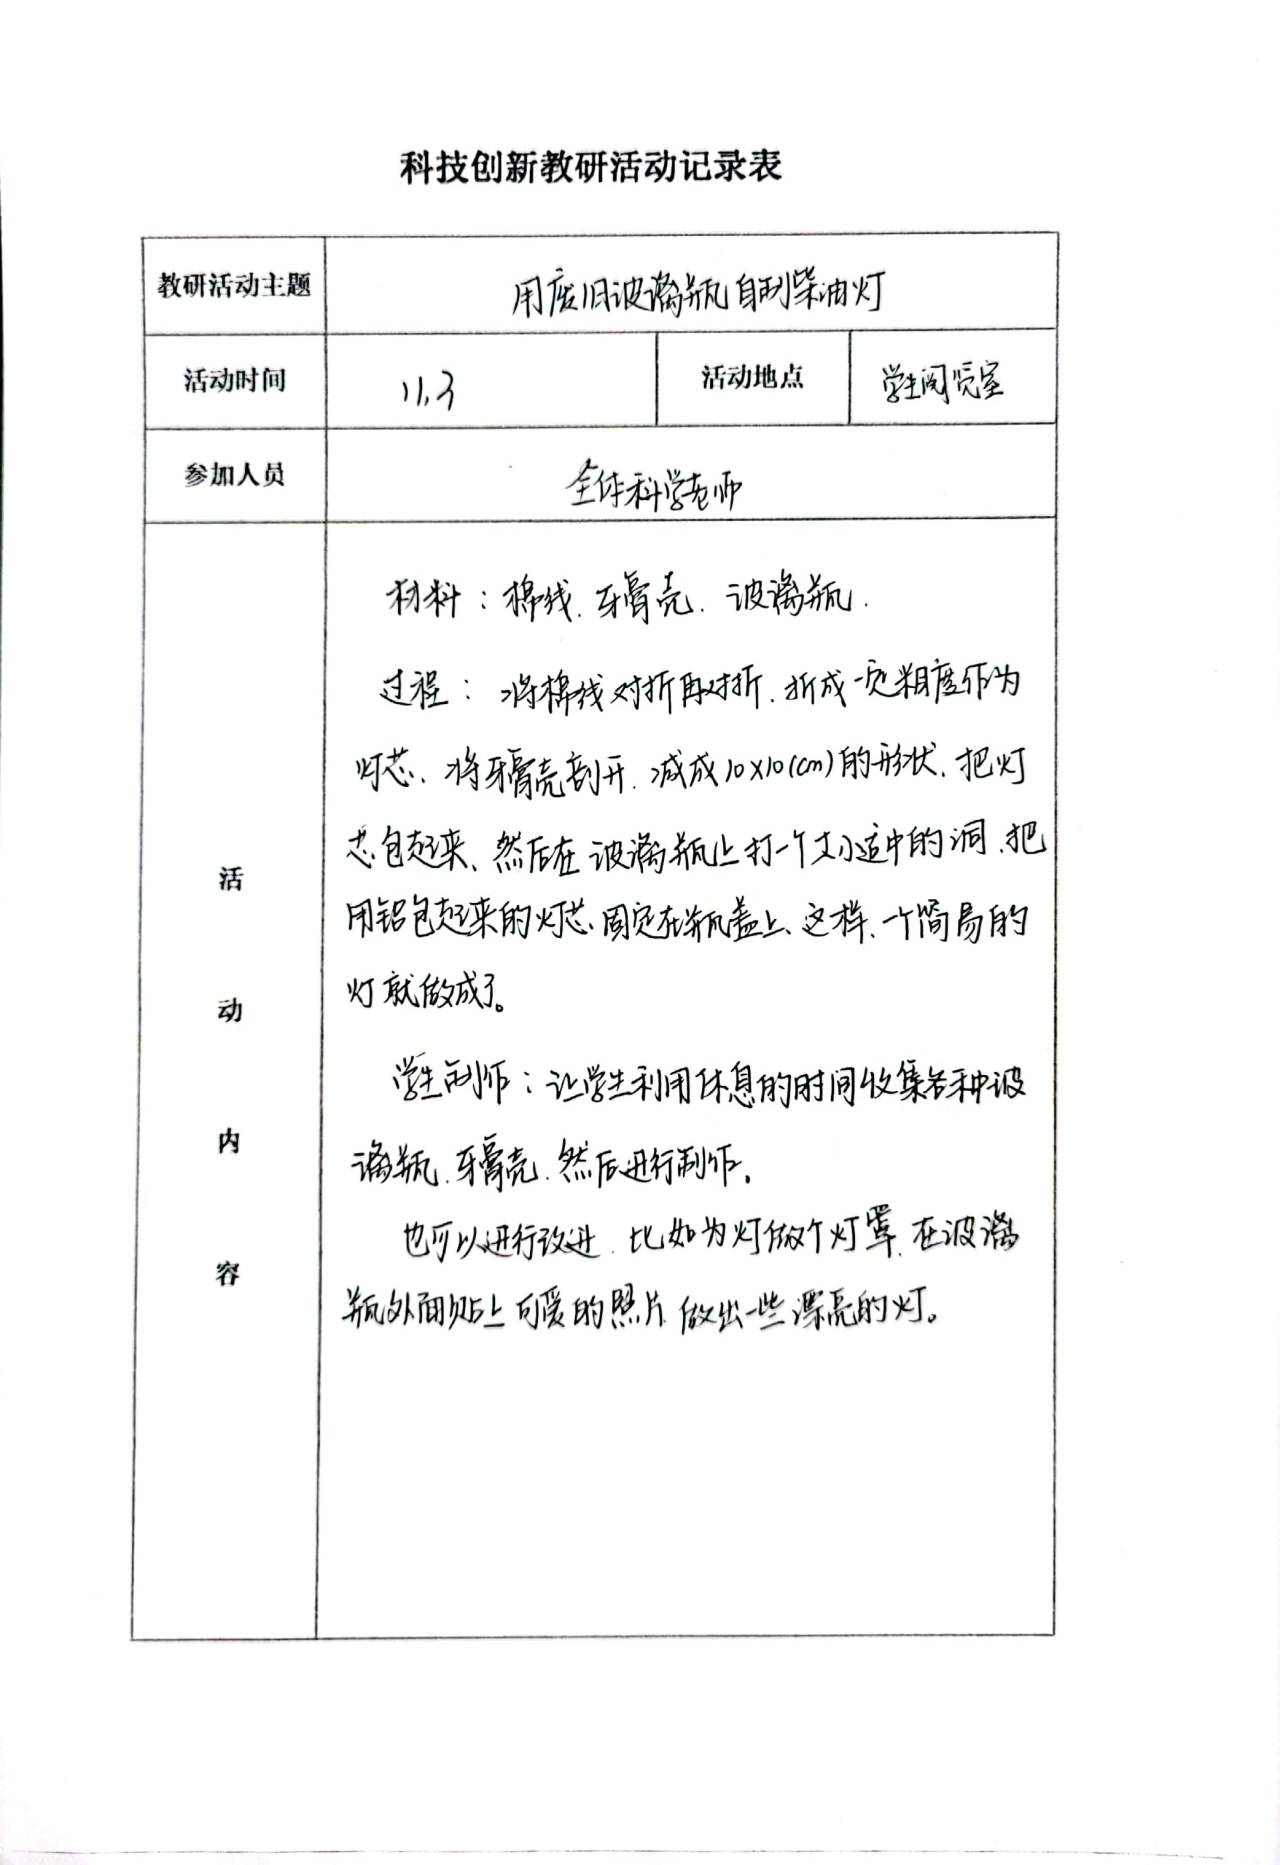 科技创新教研活动记录表
教研活动主题 用废旧玻璃瓶自制柴油灯
活动时间 11.3 活动地点 学生阅览室
参加人员 全体科学老师
活动内容
材料：棉线、牙膏壳、玻璃瓶.
过程：将棉线对折再对折、折成一定粗度作为
灯芯、将牙膏壳剖开、减成10×10(cm)的形状、把灯
芯包起来、然后在玻璃瓶上打一个大小适中的洞、把
用铝包起来的灯芯、固定在瓶盖上、这样、一个简易的
灯就做成了。
学生制作：让学生利用休息的时间收集各种玻
璃瓶、牙膏壳、然后进行制作。
也可以进行改进、比如为灯做个灯罩、在玻璃
瓶外面贴上可爱的照片、做出一些漂亮的灯。